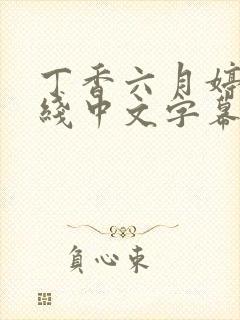 丁香六月婷
綫中文字幕
負心東